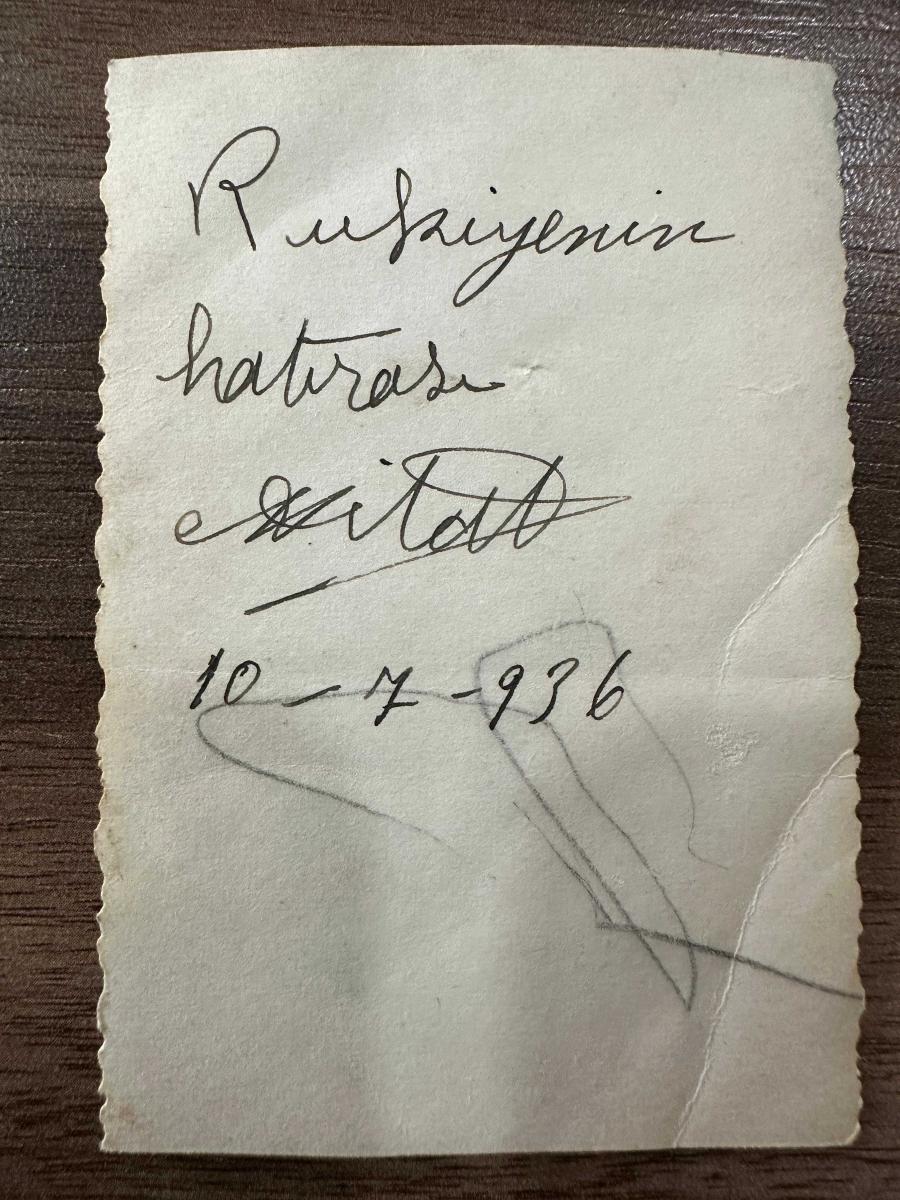 Rukiyenin
hatırası
10 - 7 - 936